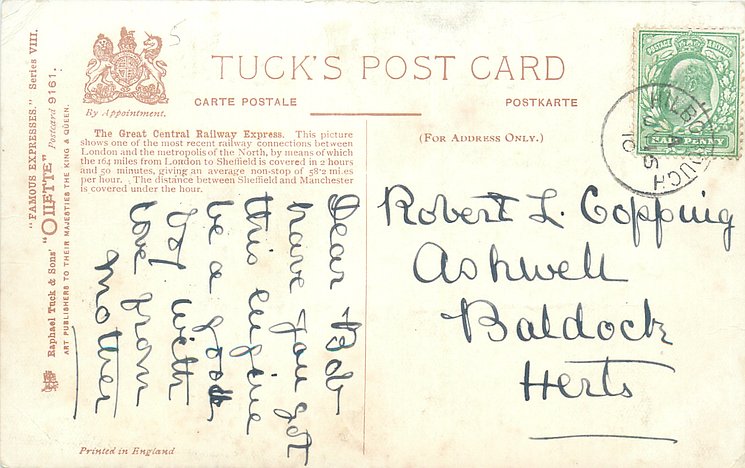 "FAMOUS EXPRESSES." Series VIII.
Raphael Tuck & Sons' "OILETTE" Postcard 9161.
ART PUBLISHERS TO THEIR MAJESTIES THE KING & QUEEN.
By Appointment.
TUCK'S POST CARD
CARTE POSTALE
POSTKARTE
(FOR ADDRESS ONLY.)
The Great Central Railway Express. This picture
shows one of the most recent railway connections between
London and the metropolis of the North, by means of which
the 164 miles from London to Sheffield is covered in 2 hours
and 50 minutes, giving an average non-stop of 58·2 miles
per hour. The distance between Sheffield and Manchester
is covered under the hour.
Dear Bob
have you got
this engine
be a good
boy with
love from
mother
POSTAGE & REVENUE
HALF PENNY
Robert L. Copping
Ashwell
Baldock
Herts
Printed in England